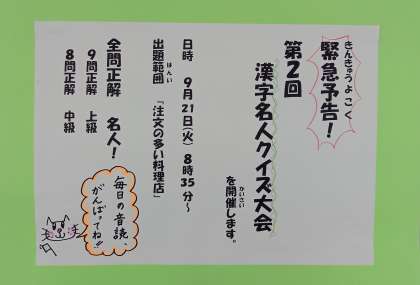 緊急予告！
きんきゅうよこく
第２回
漢字名人クイズ大会
を開催します。
かいさい
日時　９月21日(火)８時35分～
出題範囲　『注文の多い料理店』
はんい
全問正解　名人！
９問正解　上級
８問正解　中級
毎日の音読、
がんばってね!!